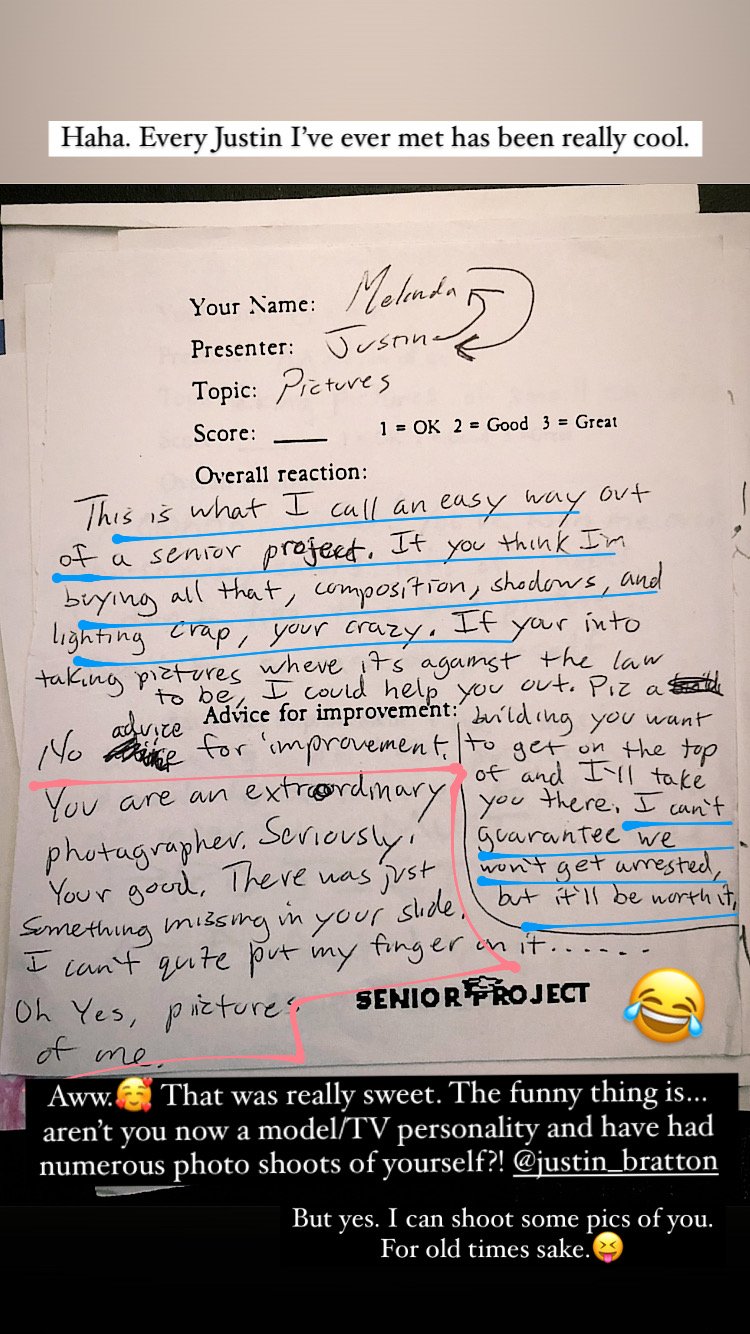 Haha. Every Justin I've ever met has been really cool.
Your Name: Melinda
Presenter: Justin
Topic: Pictures
Score: ____ 1 = OK 2 = Good 3 = Great
Overall reaction:
This is what I call an easy way out
of a senior project. If you think I'm
buying all that, composition, shadows, and
lighting crap, your crazy. If your into
taking pictures where it's against the law
to be, I could help you out. Pic a
building you want
to get on the top
of and I'll take
you there. I can't
guarantee we
won't get arrested,
but it'll be worth it,
Advice for improvement:
No advice for improvement.
You are an extraordinary
photagrapher. Seriously,
Your good. There was just
Something missing in your slide.
I can't quite put my finger on it......
Oh Yes, pictures
of me.
SENIOR PROJECT
Aww.🥰 That was really sweet. The funny thing is...
aren't you now a model/TV personality and have had
numerous photo shoots of yourself?! @justin_bratton
But yes. I can shoot some pics of you.
For old times sake.😝